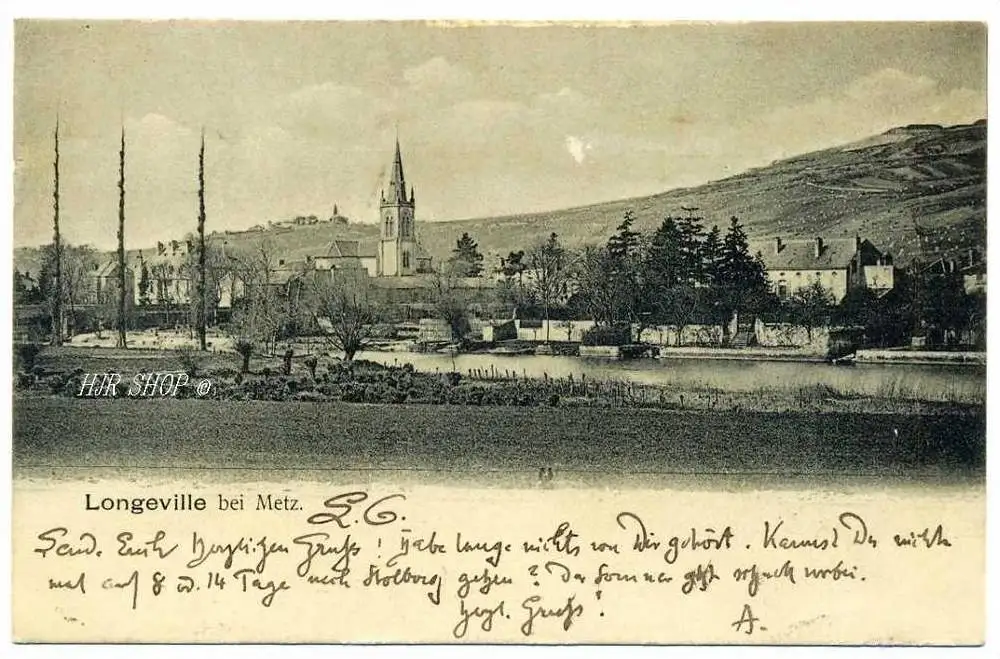 HJR SHOP ©
Longeville bei Metz.
L. G.
Send. Euch herzlichen Gruß! Habe lange nichts von Dir gehört. Kannst Du nicht
mal auf 8 od. 14 Tage nach Stolberg gehen? Der Sommer geht schnell vorbei.
Herzl. Gruß!
A.